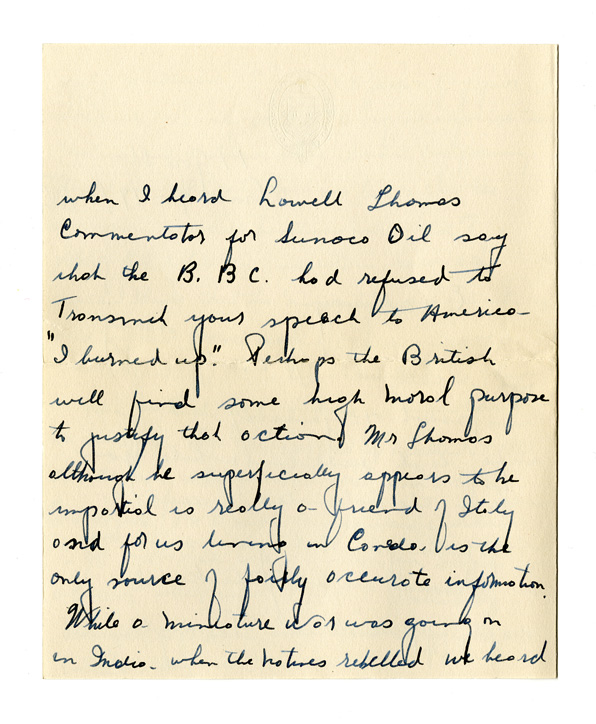 when I heard Lowell Thomas
Commentator for Sunoco Oil say
that the B. B C. had refused to
Transmit your speech to America -
"I burned up". Perhaps the British
will find some high moral purpose
to justify that action. Mr Thomas
although he superficially appears to be
impartial is really a friend of Italy
and for us living in Canada is the
only source of fairly accurate information.
While a miniature war was going on
in India - when the natives rebelled we heard